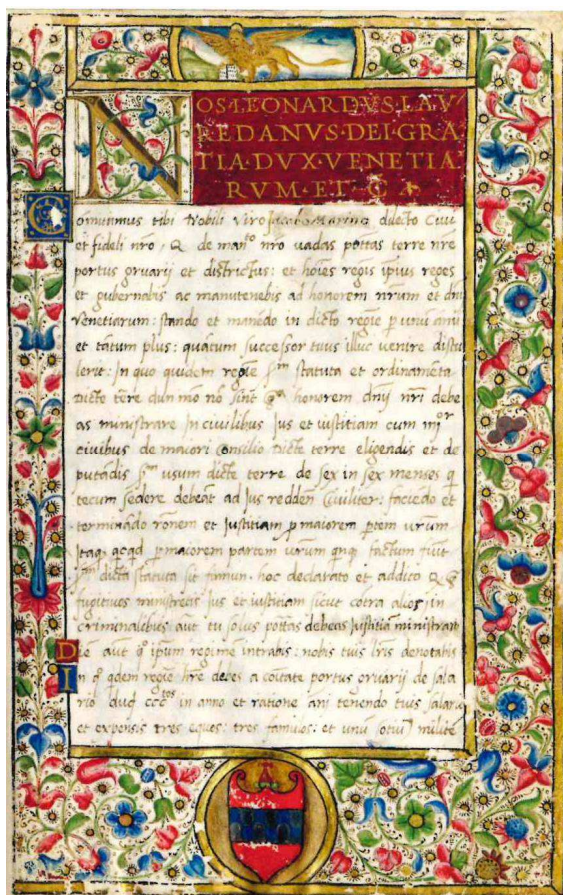 NOS·LEONARDVS·LAV
REDANVS·DEI·GRA
TIA·DVX·VENETIA
RVM·ET·C
Comittimus tibi Nobili viro Jacobo Marino dilecto Civi
et fideli nro, Q de manto nro vadas ptas terre nre
portus gruarij et districtus: et hoies regis ipius reges
et gubernabis ac manutenebis ad honorem nrum et dni
venetiarum: stando et manedo in dicto regie p unu anu
et tatum plus: quatum successor tuus illuc venire distu
lerit: In quo quidem regie sm statuta et ordinameta
dicte tere dum mo no sint honorem dnij nri debe
as ministrare In civilibus Jus et iustitiam cum
civibus de maiori Consilio dicte terre eligendis et de
putadis sm usum dicte terre de sex in sex menses q
tecum sedere debeat ad Jus redden Civiliter: faciedo et
terminado ronem et Justitiam p maiorem ptem vrum
Itaq p maiorem partem vrum factum fuit
sm dicta statuta sit firmun. hoc declarato et addico
fugitivos ministretis Jus et iustitiam sicut cotra alios, in
criminalibus aut tu solus pottas debeas Justitia ministrare
Die aut q ipum regime intrabis: nobis tuis lris denotabis
In q qdem regie hre debes a coitate portus gruarij de sala
rio duc ccctos in anno et ratione ani tenendo tuis salario
et expensis tres eques: tres famulos: et unu militē